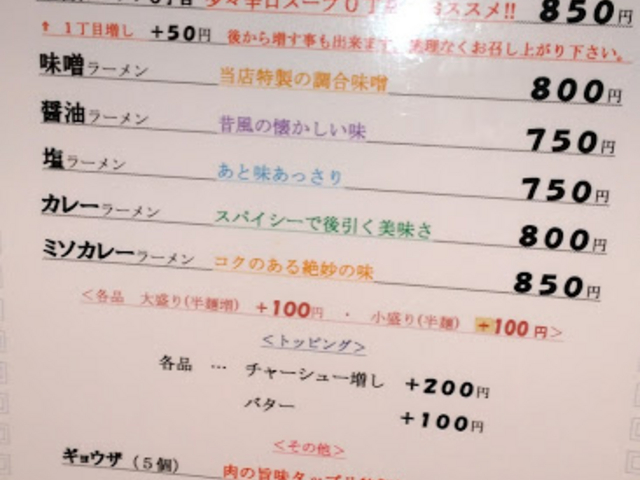 850円
↑ 1丁目増し +50円 後から増す事も出来ます。無理なくお召し上がり下さい。
味噌ラーメン 当店特製の調合味噌 800円
醤油ラーメン 昔風の懐かしい味 750円
塩ラーメン あと味あっさり 750円
カレーラーメン スパイシーで後引く美味さ 800円
ミソカレーラーメン コクのある絶妙の味 850円
＜各品 大盛り(半麺増) +100円 ・ 小盛り(半麺) +100円＞
＜トッピング＞
各品 … チャーシュー増し +200円
バター +100円
＜その他＞
ギョウザ（５個） 肉の旨味